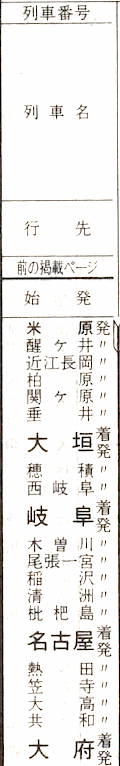 列車番号
列車名
行先
前の掲載ページ
始発
米原発
醒ケ井〃
近江長岡〃
柏原〃
関ケ原〃
垂井〃
大垣着発
穂積〃
西岐阜〃
岐阜着発
木曽川〃
尾張一宮〃
稲沢〃
清洲〃
枇杷島〃
名古屋着発
熱田〃
笠寺〃
大高〃
共和〃
大府着発